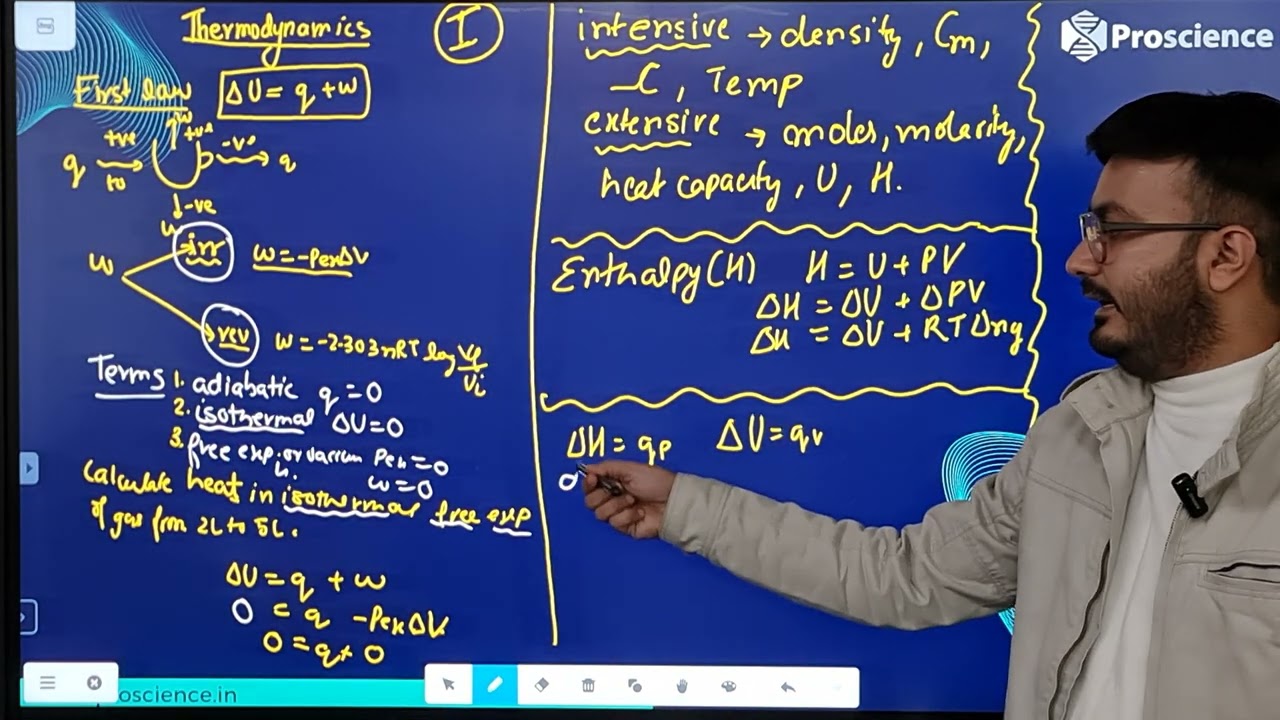 Thermodynamics
I
First law ΔU = q + w
w
+ve +ve
q → -ve → q
to
-ve
w
w irr w = -Pex ΔV
rev w = -2.303 nRT log Vf/Vi
Terms 1. adiabatic q = 0
2. isothermal ΔU = 0
3. free exp. or vacuum Pex = 0
w = 0
Calculate heat in isothermal free exp
of gas from 2L to 5L.
ΔU = q + w
0 = q - Pex ΔV
0 = q + 0
intensive → density, Cm,
C, Temp
extensive → moles, molarity,
heat capacity, U, H.
Enthalpy (H) H = U + PV
ΔH = ΔU + ΔPV
ΔH = ΔU + RTΔng
ΔH = qp ΔU = qv
Proscience
oscience.in